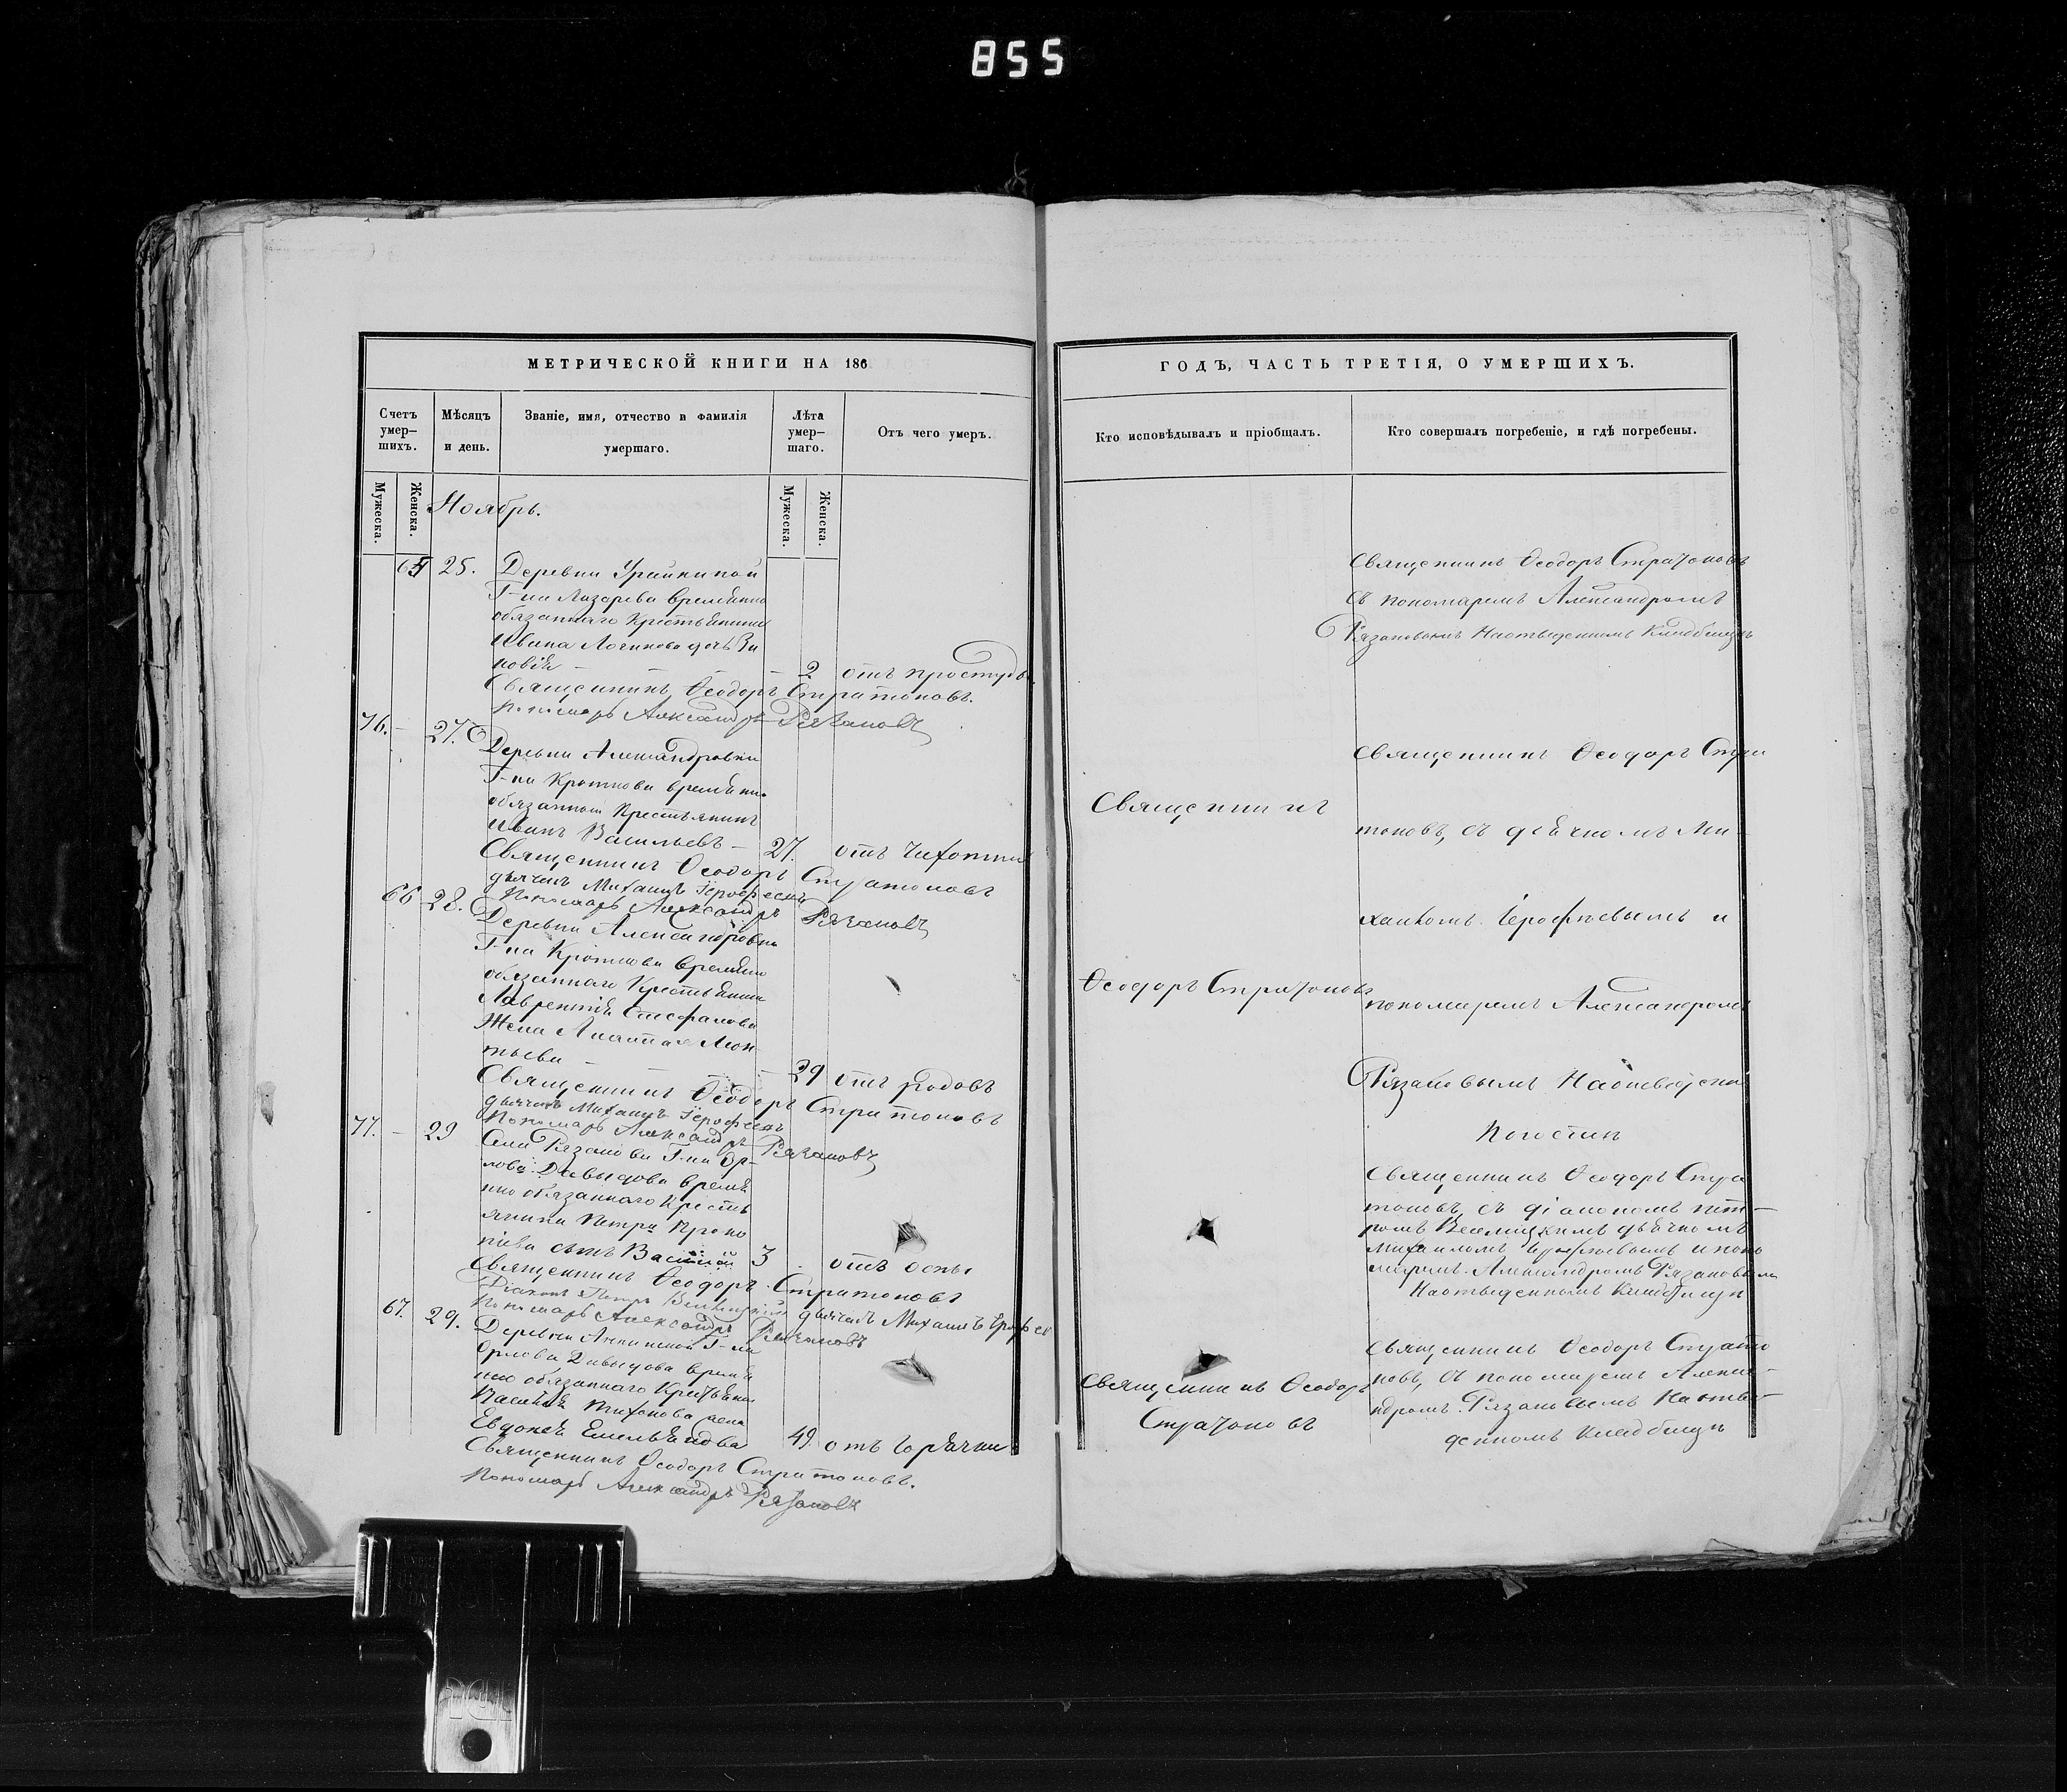 855
МЕТРИЧЕСКОЙ КНИГИ НА 186
Счетъ умер-шихъ.
Мѣсяцъ и день.
Званіе, имя, отчество и фамилія умершаго.
Лѣта умер-шаго.
Отъ чего умеръ.
Мужеска.
Женска.
Мужеска.
Женска.
Ноябрь.
65 25. Деревни
Г-на Лазарева временно
обязаннаго Крестьянина
Ивана дочь Зи
новія 2 отъ простуды
Священникъ Ѳеодоръ Стратоновъ.
Пономарь Александръ Рязановъ
76. 27. Деревни Александровки
Г-на Кроткова временно
обязанный Крестьянинъ
Иванъ Васильевъ 27. отъ чихотки
Священникъ Ѳеодоръ Стратоновъ
дьячекъ Михаилъ Іерофеевъ
Пономарь Александръ Рязановъ
66 28. Деревни Александровки
Г-на Кроткова временно
обязаннаго Крестьянина
Лаврентія Стефанова
Жена Леон
тьева 29 отъ родовъ
Священникъ Ѳеодоръ Стратоновъ
дьячекъ Михаилъ Іерофеевъ
Пономарь Александръ Рязановъ
77. 29 Села Рязанова Г-на Ор-
лова Давыдова време
нно обязаннаго Кресть
янина Петра Проко
піева сынъ Василій 3 отъ оспы
Священникъ Ѳеодоръ Стратоновъ
Діаконъ Петръ дьячекъ Михаилъ Ерофее
Пономарь Александръ Рязановъ
67. 29. Деревни Г-на
Орлова Давыдова време
нно обязаннаго Крестьянина
Тихонова жена
Евдокея Емельянова 49. отъ горячки
Священникъ Ѳеодоръ Стратоновъ.
Пономарь Александръ Рязановъ
ГОДЪ, ЧАСТЬ ТРЕТІЯ, О УМЕРШИХЪ.
Кто исповѣдывалъ и пріобщалъ.
Кто совершалъ погребеніе, и гдѣ погребены.
Священникъ Ѳеодоръ Стратоновъ
съ пономаремъ Александромъ
Рязановымъ На отведенномъ Кладбищѣ
Священникъ
Ѳеодоръ Стратоновъ
Священникъ Ѳеодоръ Стра
тоновъ, съ дьячкомъ Ми-
хаиломъ Іерофеевымъ и
пономаремъ Александромъ
Рязановымъ
Погостѣ
Священникъ Ѳеодоръ Стра
тоновъ, съ діакономъ Пет-
ромъ дьячкомъ
Михаиломъ Ерофеевымъ и поно
маремъ Александромъ Рязановымъ
На отведенномъ Кладбищѣ
Священникъ Ѳеодоръ
Стратоновъ
Священникъ Ѳеодоръ Страто
новъ, съ пономаремъ Алекса-
ндромъ Рязановымъ На отве-
денномъ Кладбищѣ